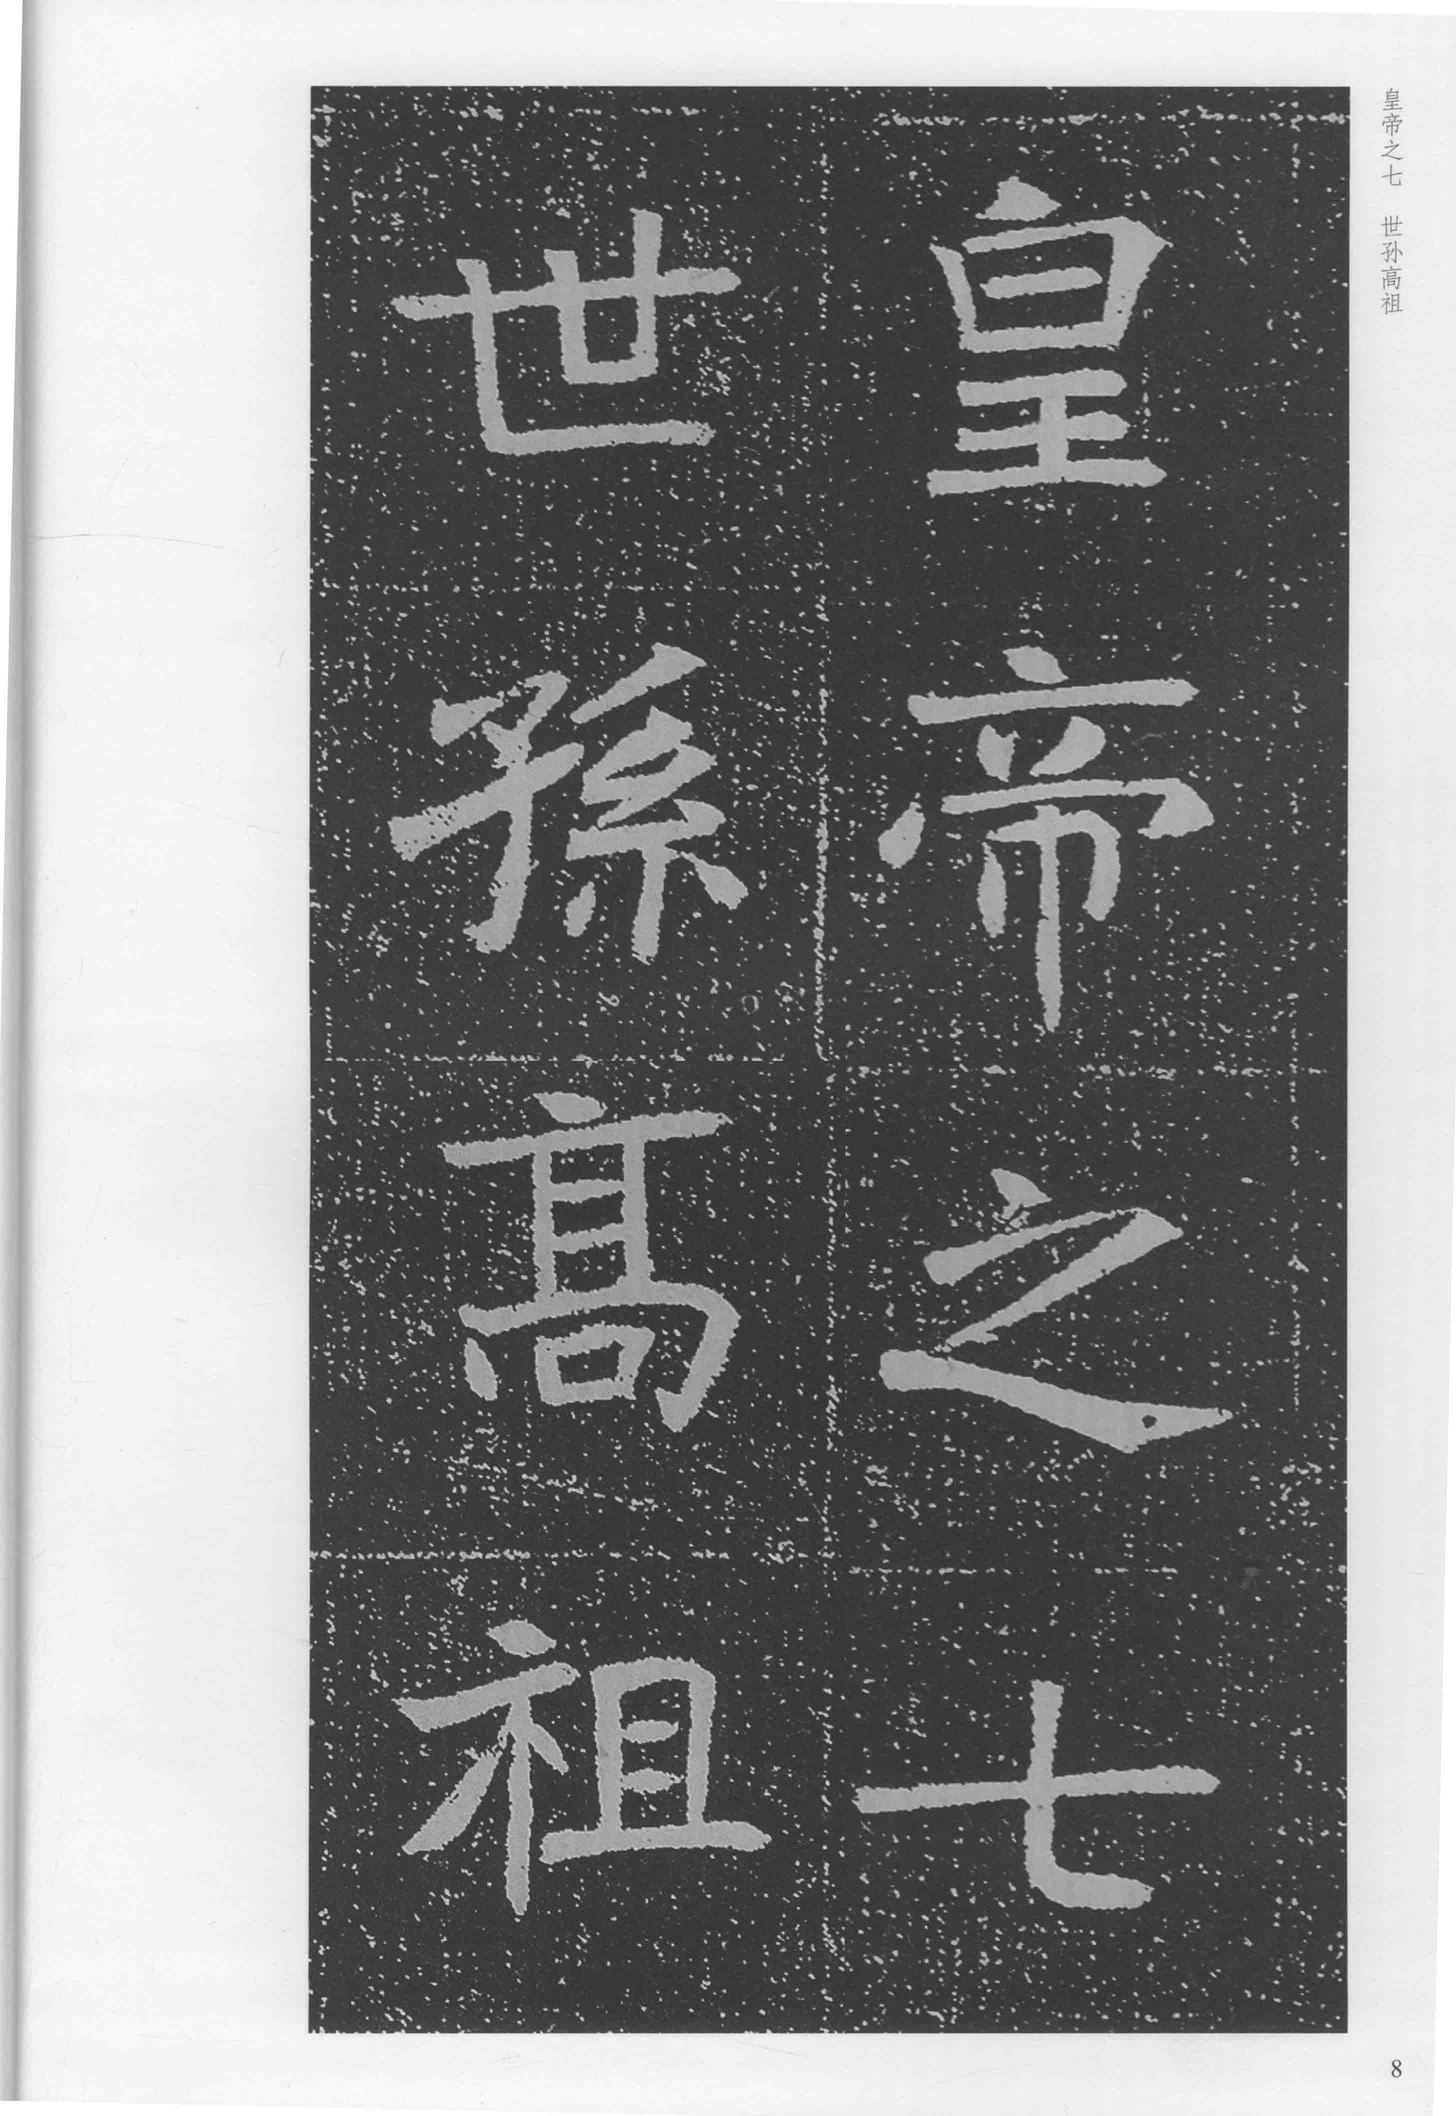 皇帝之七　世孙高祖
皇帝之七
世孫髙祖
8